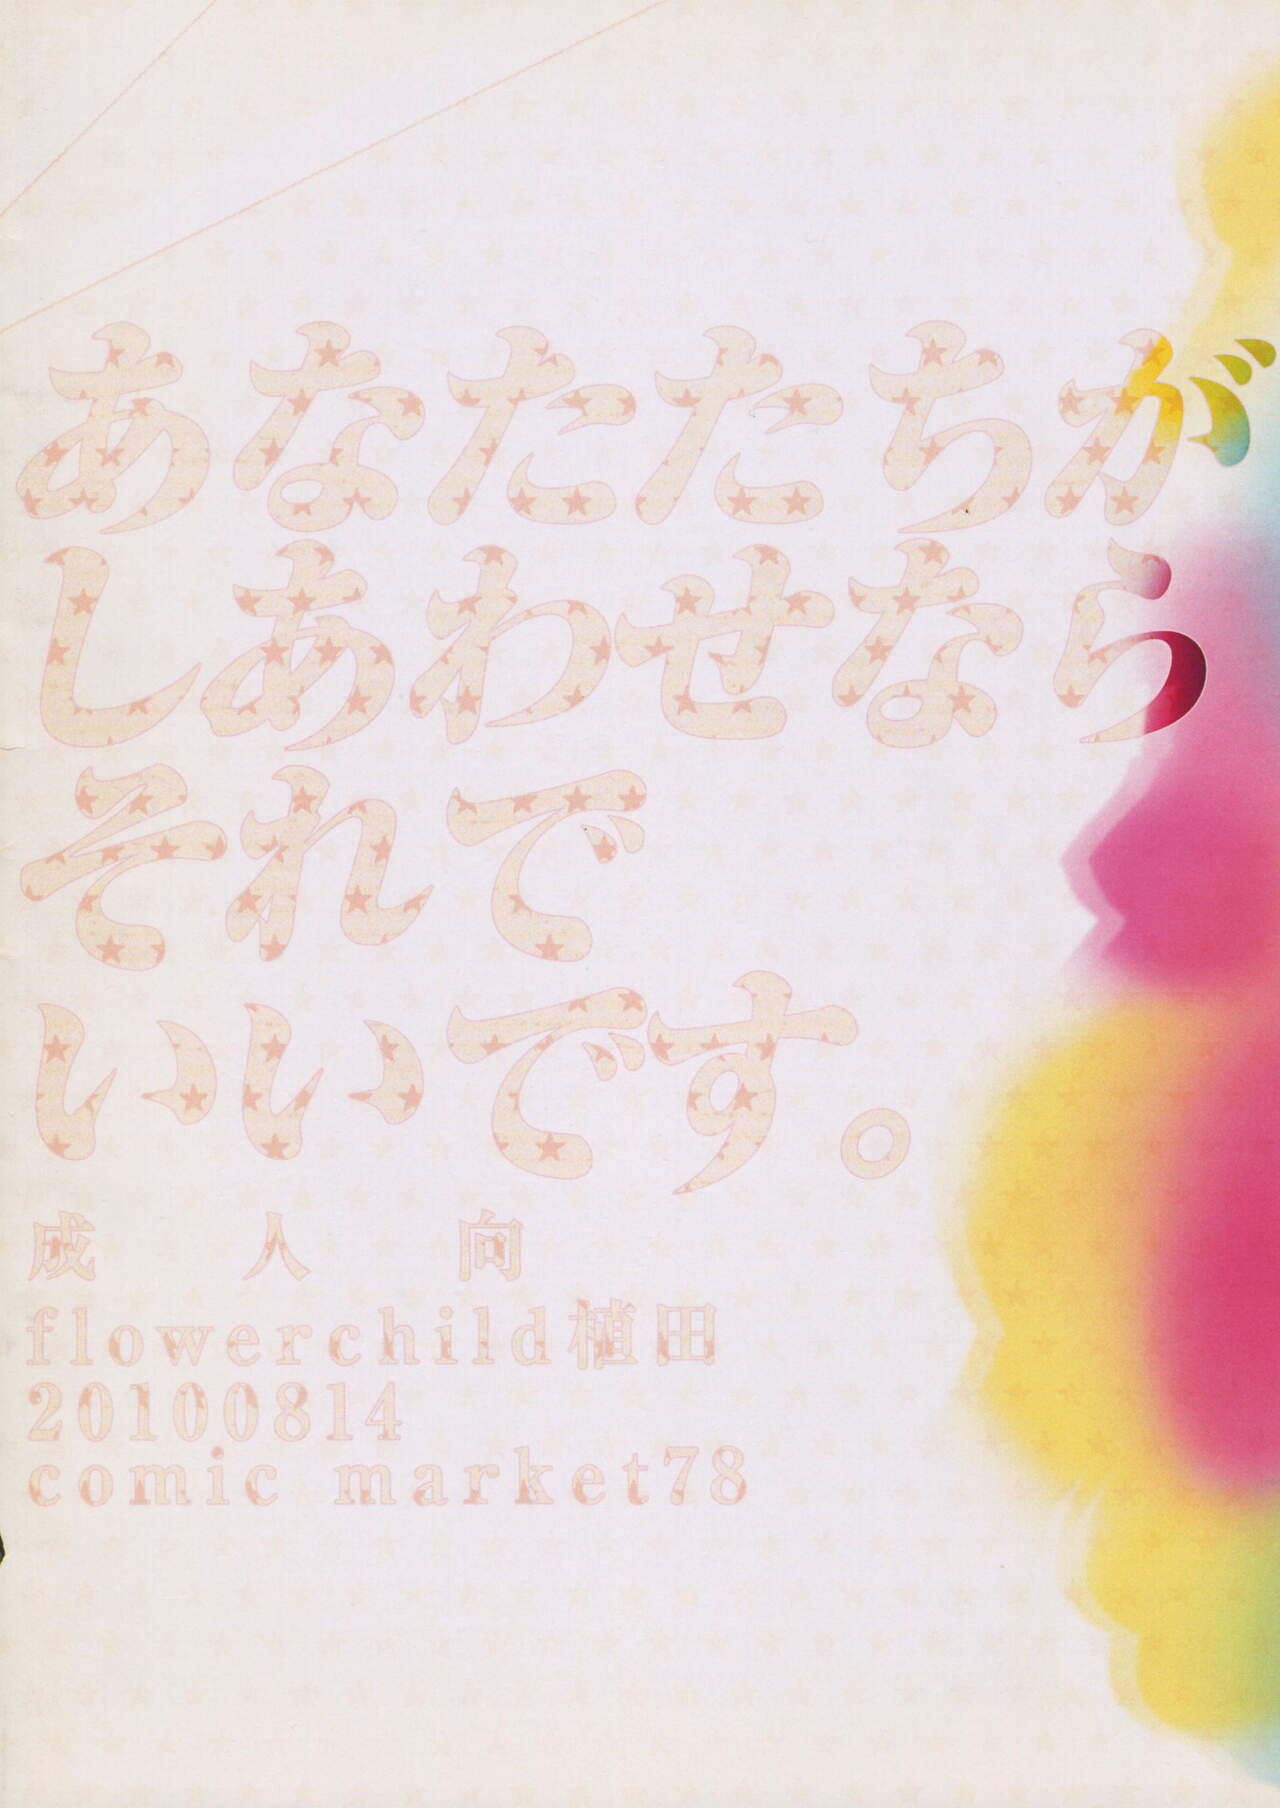 あなたたちが
しあわせなら
それで
いいです。
成人向
flowerchild植田
20100814
comic market78